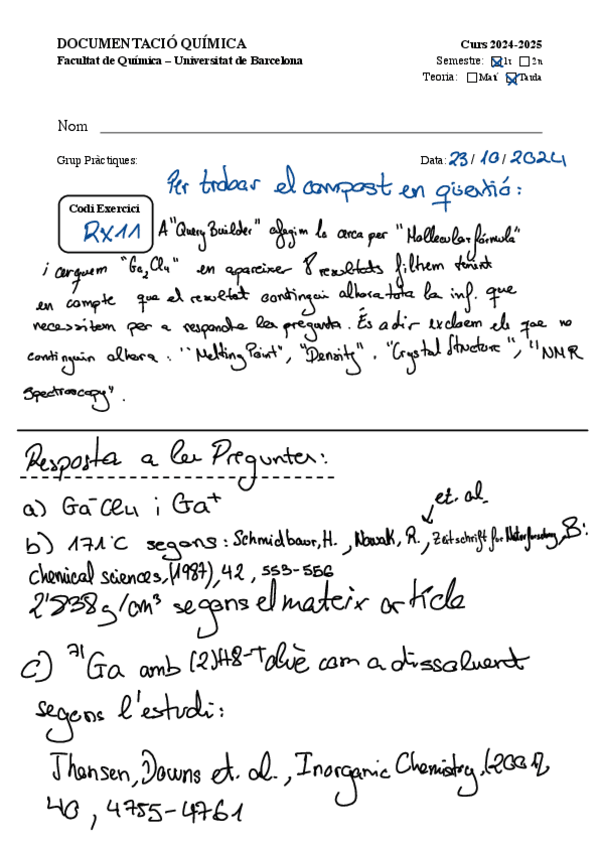 DOCUMENTACIÓ QUÍMICA
Curs 2024-2025
Facultat de Química – Universitat de Barcelona
Semestre: ☒1r ☐2n
Teoria: ☐Matí ☒Tarda
Nom
Grup Pràctiques:
Data: 23/10/2024
Per trobar el compost en qüestió:
Codi Exercici
RX11
A "Query Builder" afegim la cerca per "Mollecular fórmula"
i cerquem "Ga2Cl4" en apareixer 8 resultats filtrem tenint
en compte que el resultat contingui alhora tota la inf. que
necessitem per a respondre les pregunta. És a dir excloem els que no
continguin alhora: "Melting Point", "Density", "Crystal Structure", "NMR
Spectroscopy".
Resposta a les Preguntes:
a) Ga⁻Cl4 i Ga⁺
et. al.
b) 171°C segons: Schmidbaur, H., Nowak, R., Zeitschrift für Naturforschung, B:
Chemical sciences, (1987), 42, 553-556
2'338g/cm³ segons el mateix article
c) ⁷¹Ga amb (2)H8-Tolvè com a dissolvent
segons l'estudi:
Jhansen, Downs et. al., Inorganic Chemistry, (2001),
40, 4755-4761